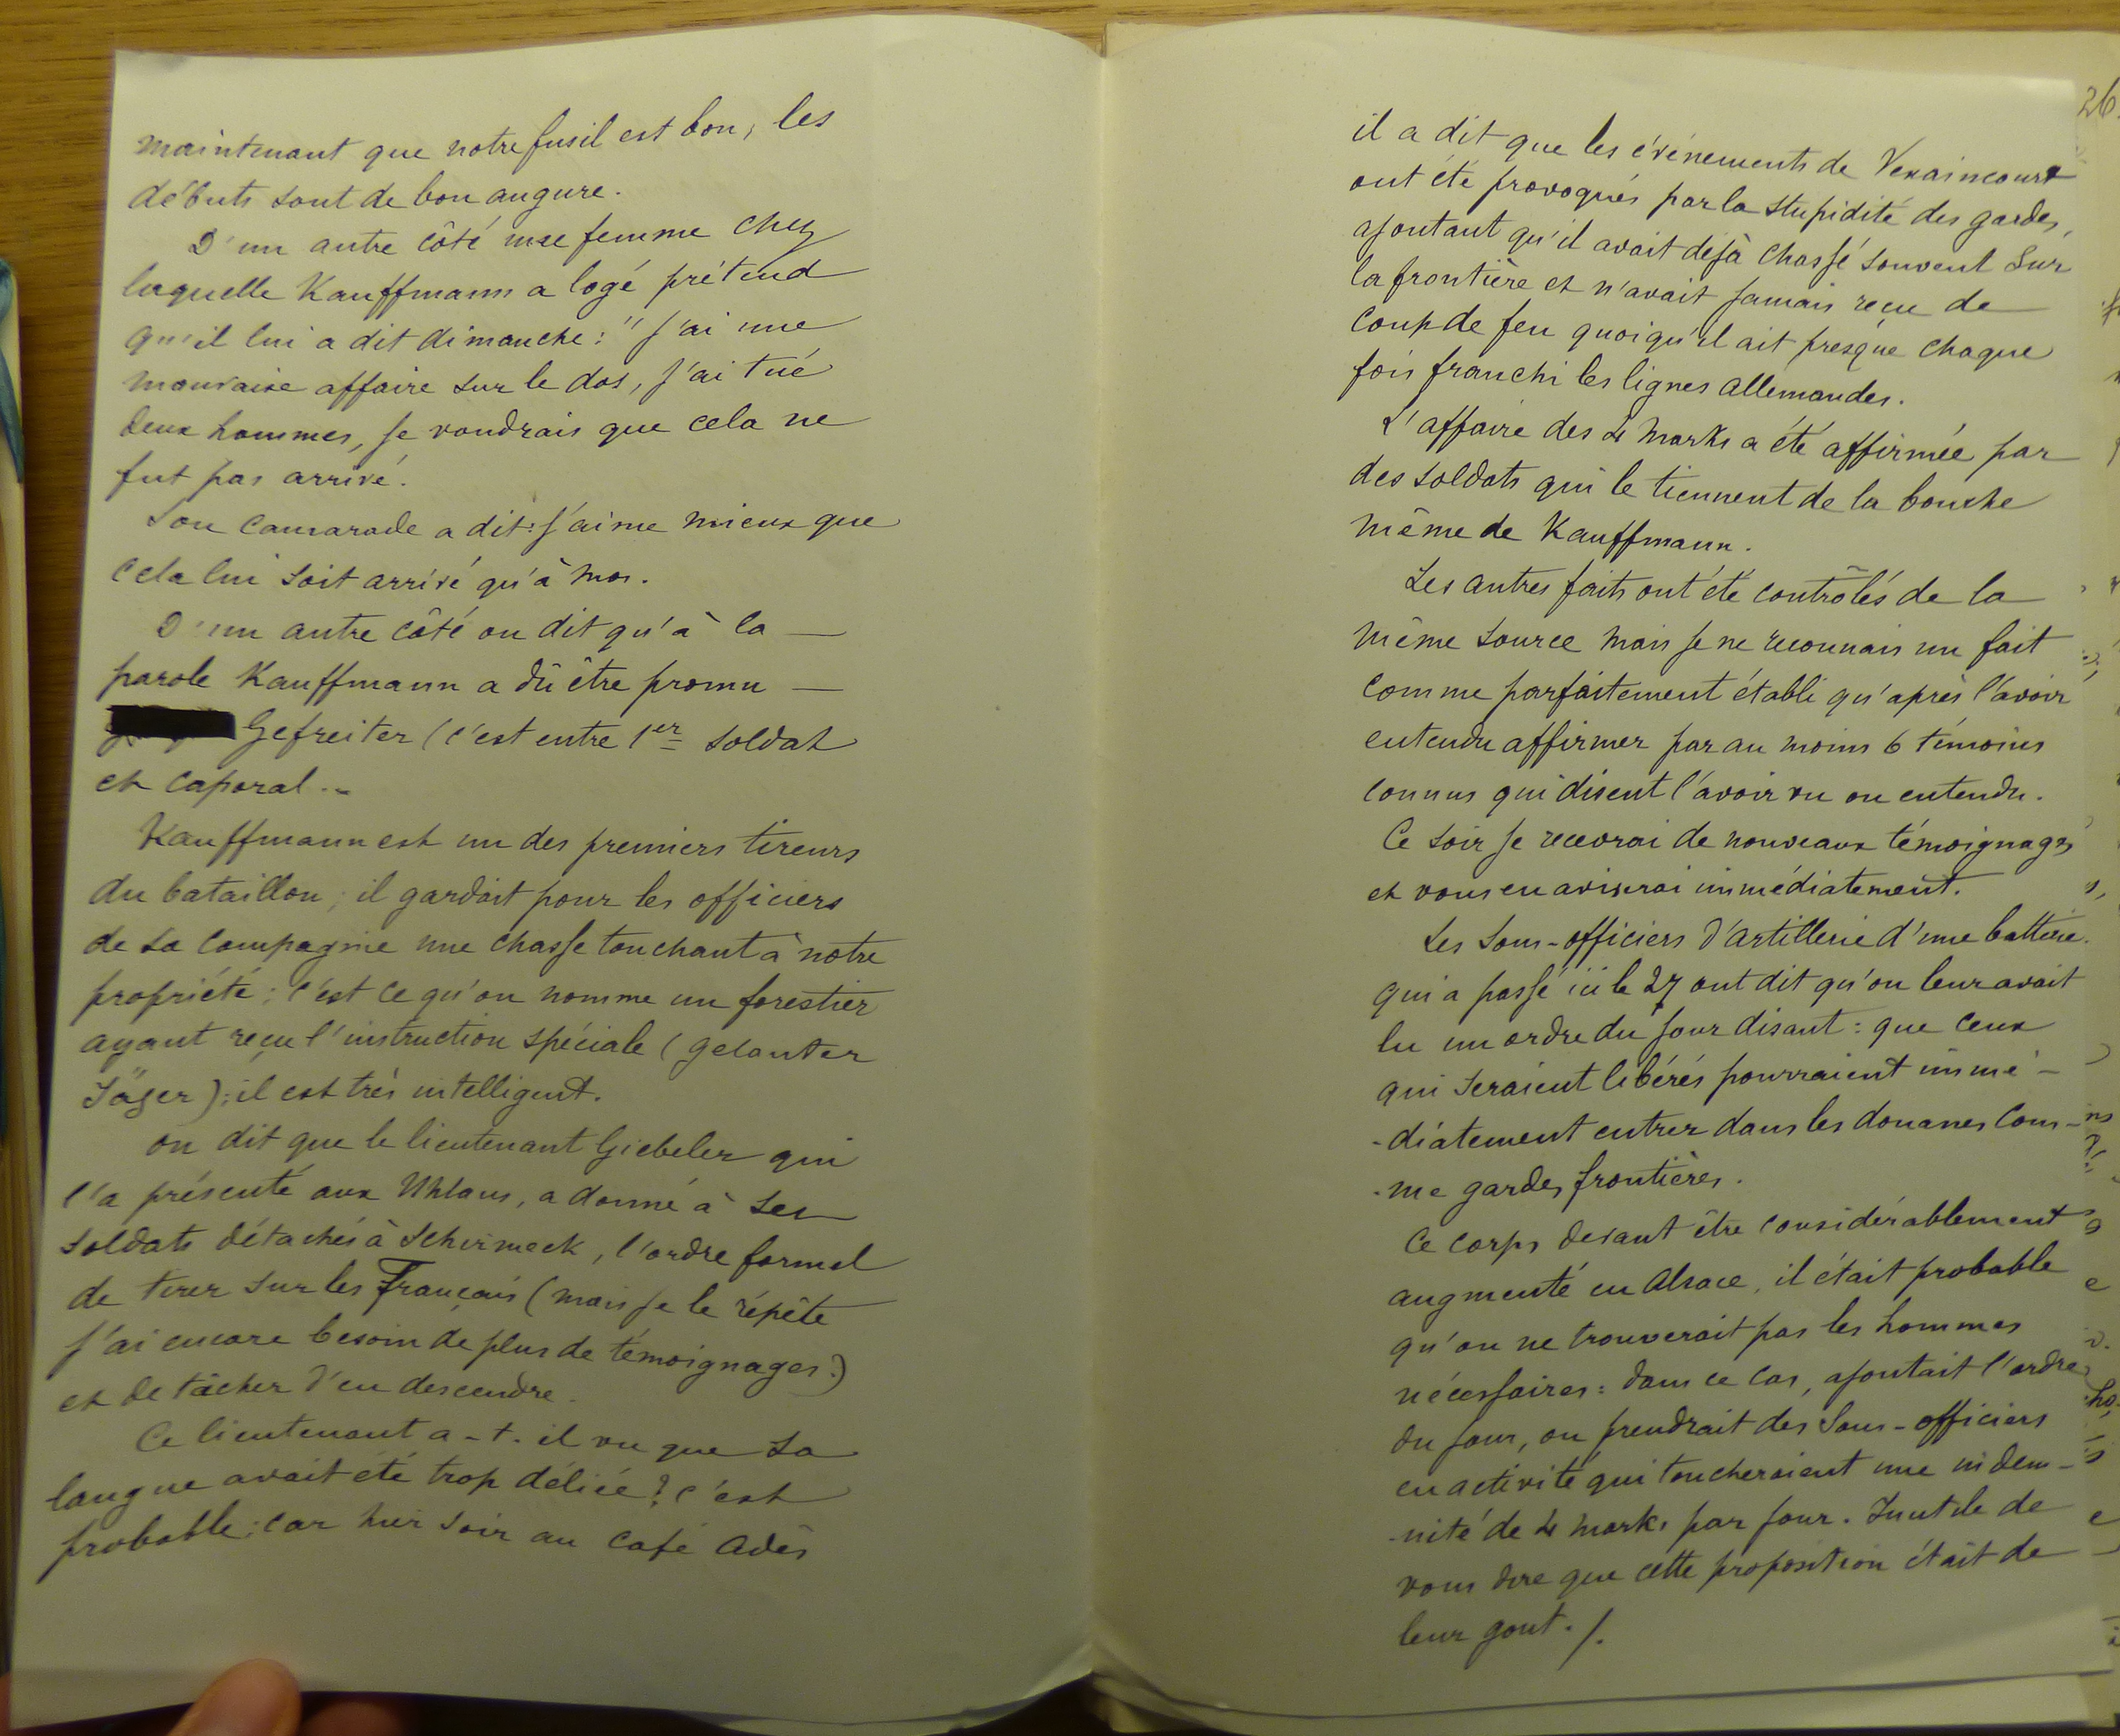 maintenant que notre fusil est bon, les
débuts sont de bon augure.
D'un autre côté une femme chez
laquelle Kauffmann a logé prétend
qu'il lui a dit dimanche : "J'ai une
mauvaise affaire sur le dos, j'ai tué
deux hommes, je voudrais que cela ne
fut pas arrivé.
Son camarade a dit : J'aime mieux que
cela lui soit arrivé qu'à moi.
D'un autre côté on dit qu'à la —
parole Kauffmann a dû être promu —
Gefreiter (c'est entre 1er soldat
et caporal..
Kauffmann est un des premiers tireurs
du bataillon ; il gardait pour les officiers
de sa compagnie une chasse touchant à notre
propriété ; c'est ce qu'on nomme un forestier
ayant reçu l'instruction spéciale (gelanter
Jäger) ; il est très intelligent.
on dit que le lieutenant Giebeler qui
l'a présenté aux Uhlans, a donné à ses
soldats détachés à Schirmeck, l'ordre formel
de tirer sur les Français (mais je le répète
j'ai encore besoin de plus de témoignages.)
et de tâcher d'en descendre.
Ce lieutenant a-t-il vu que sa
langue avait été trop déliée ? c'est
probable ; car hier soir au café Adès
26.
il a dit que les événements de Vexaincourt
ont été provoqués par la stupidité des gardes,
ajoutant qu'il avait déjà chassé souvent sur
la frontière et n'avait jamais reçu de
coup de feu quoiqu'il ait presque chaque
fois franchi les lignes allemandes.
L'affaire des 4 marks a été affirmée par
des soldats qui le tiennent de la bouche
même de Kauffmann.
Les autres faits ont été contrôlés de la
même source mais je ne reconnais un fait
comme parfaitement établi qu'après l'avoir
entendu affirmer par au moins 6 témoins
connus qui disent l'avoir vu ou entendu.
Ce soir je recevrai de nouveaux témoignages
et vous en aviserai immédiatement.
Les sous-officiers d'artillerie d'une batterie
qui a passé ici le 27 ont dit qu'on leur avait
lu un ordre du jour disant : que ceux
qui seraient libérés pourraient immé-
-diatement entrer dans les douanes com-
-me gardes frontières.
Ce corps devant être considérablement
augmenté en Alsace, il était probable
qu'on ne trouverait pas les hommes
nécessaires : dans ce cas, ajoutait l'ordre
du jour, on prendrait des sous-officiers
en activité qui toucheraient une indem-
-nité de 4 marks par jour. Inutile de
vous dire que cette proposition était de
leur gout./.